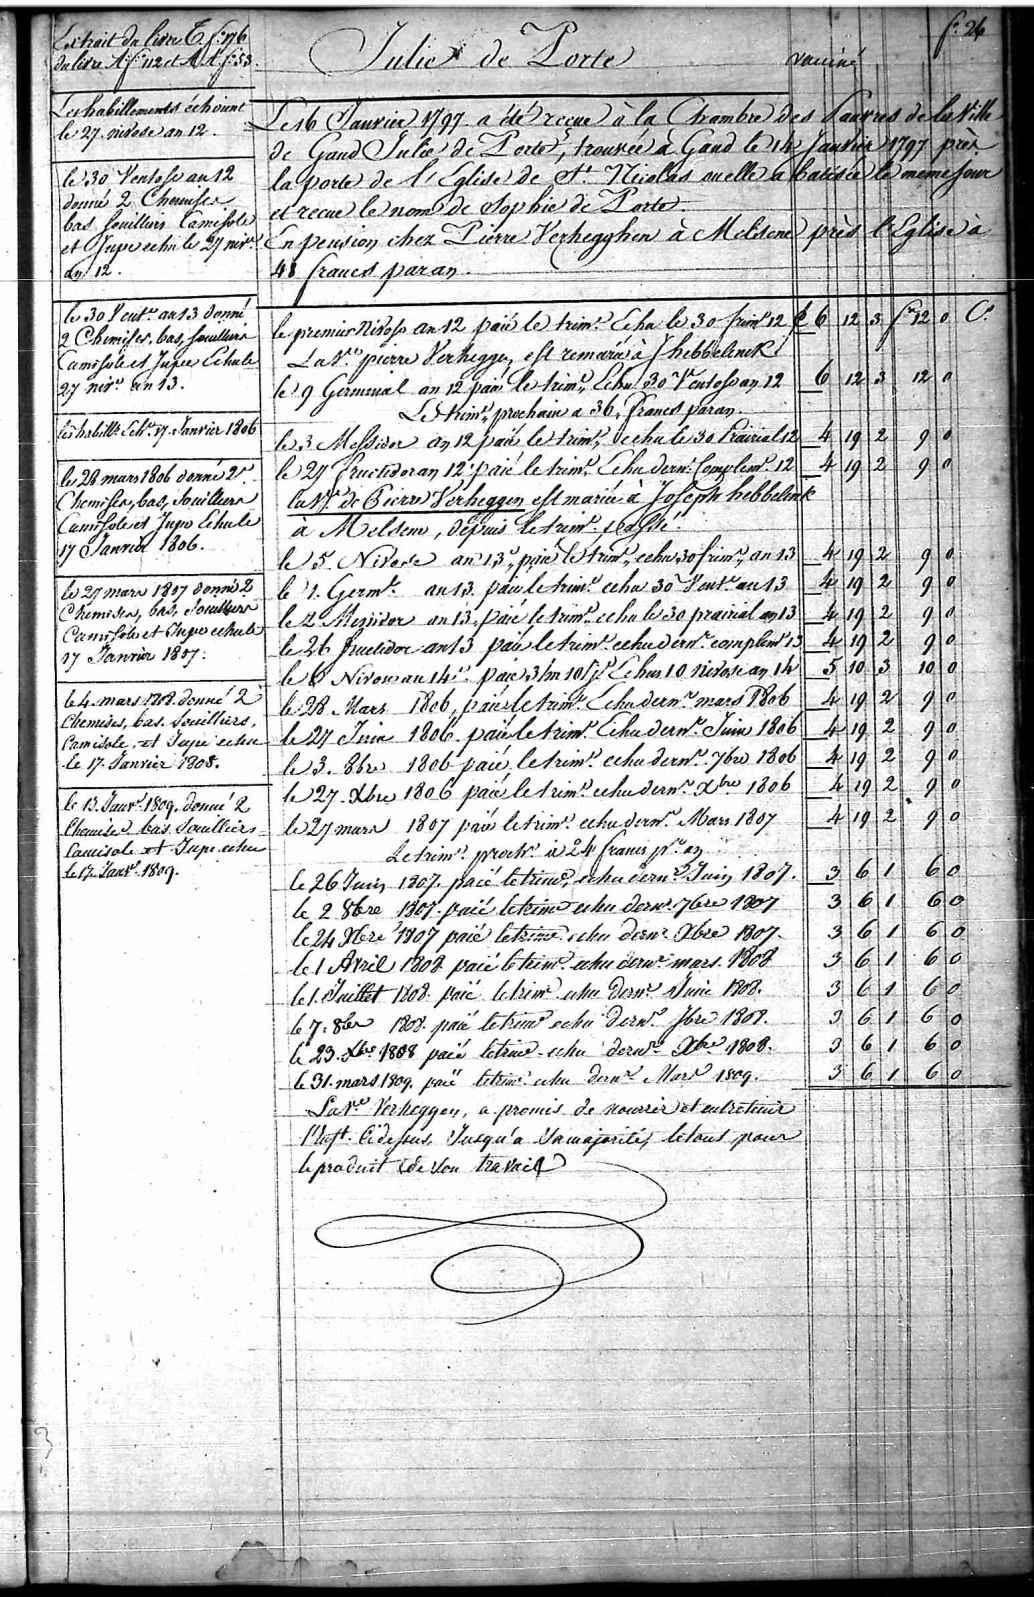 fo. 26
Extrait du livre T. fo. 176
du livre A fo. 112 et A A fo. 53.
Julie de Porte
vaciné
Les habillements échoient
le 27 nivose an 12.
le 30 Ventose an 12
donné 2 Chemises
bas souilliers Camisole
et Jupe echu le 27 nivse.
an 12.
le 30 Vente. an 13 donné
2 Chemises, bas, souilliers
Camisole et Jupe Echu le
27 nive. an 13.
les habills. Echt. 17 Janvier 1806
le 28 mars 1806 donné 2
Chemises, bas, Souilliers
Camisole et Jupe Echu le
17 Janvier 1806.
le 27 mars 1807 donné 2
Chemises, bas, Souilliers
Camisole et Jupe echu le
17 Janvier 1807.
le 4 mars 1808 donné 2
Chemises, bas Souilliers,
Camisole, et Jupe echu
le 17 Janvier 1808.
le 13 Janvr. 1809. donné 2
Chemises bas Souilliers
Camisole et Jupe echu
le 17 Janvr. 1809.
Le 16 Janvier 1797 a été reçue à la Chambre des Pauvres de la Ville
de Gand Julie de Porte, trouvée à Gand le 14 Janvier 1797 près
la porte de l'Eglise de St. Nicolas ou elle a batisée le meme jour
et recue le nom de Sophie de Porte.
En pension chez Pierre Verhegghen à Melsene près l'Eglise à
48 francs par an.
le premier Nivose an 12 paié le trime. Echu le 30 frime. 12 £ 6 12 3 fr. 12 0 Cs.
La Ve. pierre Verheggen, est remariée à J hebbelinck
le 9 Germinal an 12 paié le trime. Echu 30 Ventose an 12 6 12 3 12 0
Le trime. prochain a 36, francs par an.
le 3 Messidor an 12 paié le trime. echu le 30 Prairial 12 4 19 2 9 0
le 27 fructidor an 12 paié le trime. Echu derne. Complemre. 12 4 19 2 9 0
la Ve. de Pierre Verheggen est mariée à Joseph hebbelink
à Melsene, depuis le trime. passé.
le 5. Nivose an 13, paié le trime. echu 30 frime. an 13 4 19 2 9 0
le 1. Germl. an 13. paié le trime. echu 30 Vente. an 13 4 19 2 9 0
le 2 Messidor an 13. paié le trime. echu le 30 prairial an 13 4 19 2 9 0
le 26 fructidor an 13 paié le trime. echu derne. complemre. 13 4 19 2 9 0
le 6 Nivose an 14. paié 3/m 10 js. Echus 10 nivose an 14 5 10 3 10 0
le 28 Mars 1806, paié le trime. Echu derne. mars 1806 4 19 2 9 0
le 27 Juin 1806. paié le trime. Echu derne. Juin 1806 4 19 2 9 0
le 3. 8bre 1806 paié le trime. echu derne. 7bre 1806 4 19 2 9 0
le 27. Xbre 1806 paié le trime. echu derne. Xbre 1806 4 19 2 9 0
le 27 mars 1807 paié le trime. echu derne. Mars 1807 4 19 2 9 0
Le trime. prochn. à 24 francs pr. an
le 26 Juin 1807. paié le trime. echu derne. Juin 1807. 3 6 1 6 0
le 2 8bre 1807. paié le trime echu derne. 7bre 1807 3 6 1 6 0
le 24 Xbre 1807 paié le trime echu derne. Xbre 1807. 3 6 1 6 0
le 1 Avril 1808 paié le trime. echu derne. mars. 1808 3 6 1 6 0
le 1. Juillet 1808. paié le trime echu derne. Juin 1808. 3 6 1 6 0
le 7. 8bre 1808. paié le trime echu derne. 7bre 1808. 3 6 1 6 0
le 23. Xbre 1808 paié le trime echu derne. Xbre 1808. 3 6 1 6 0
le 31. mars 1809. paié le trime echu derne. Mars 1809. 3 6 1 6 0
La Ve. Verheggen, a promis de nourrir et entretenir
l'enft. Cidessus Jusqu'a sa majorité, le tout pour
le produit de son travail